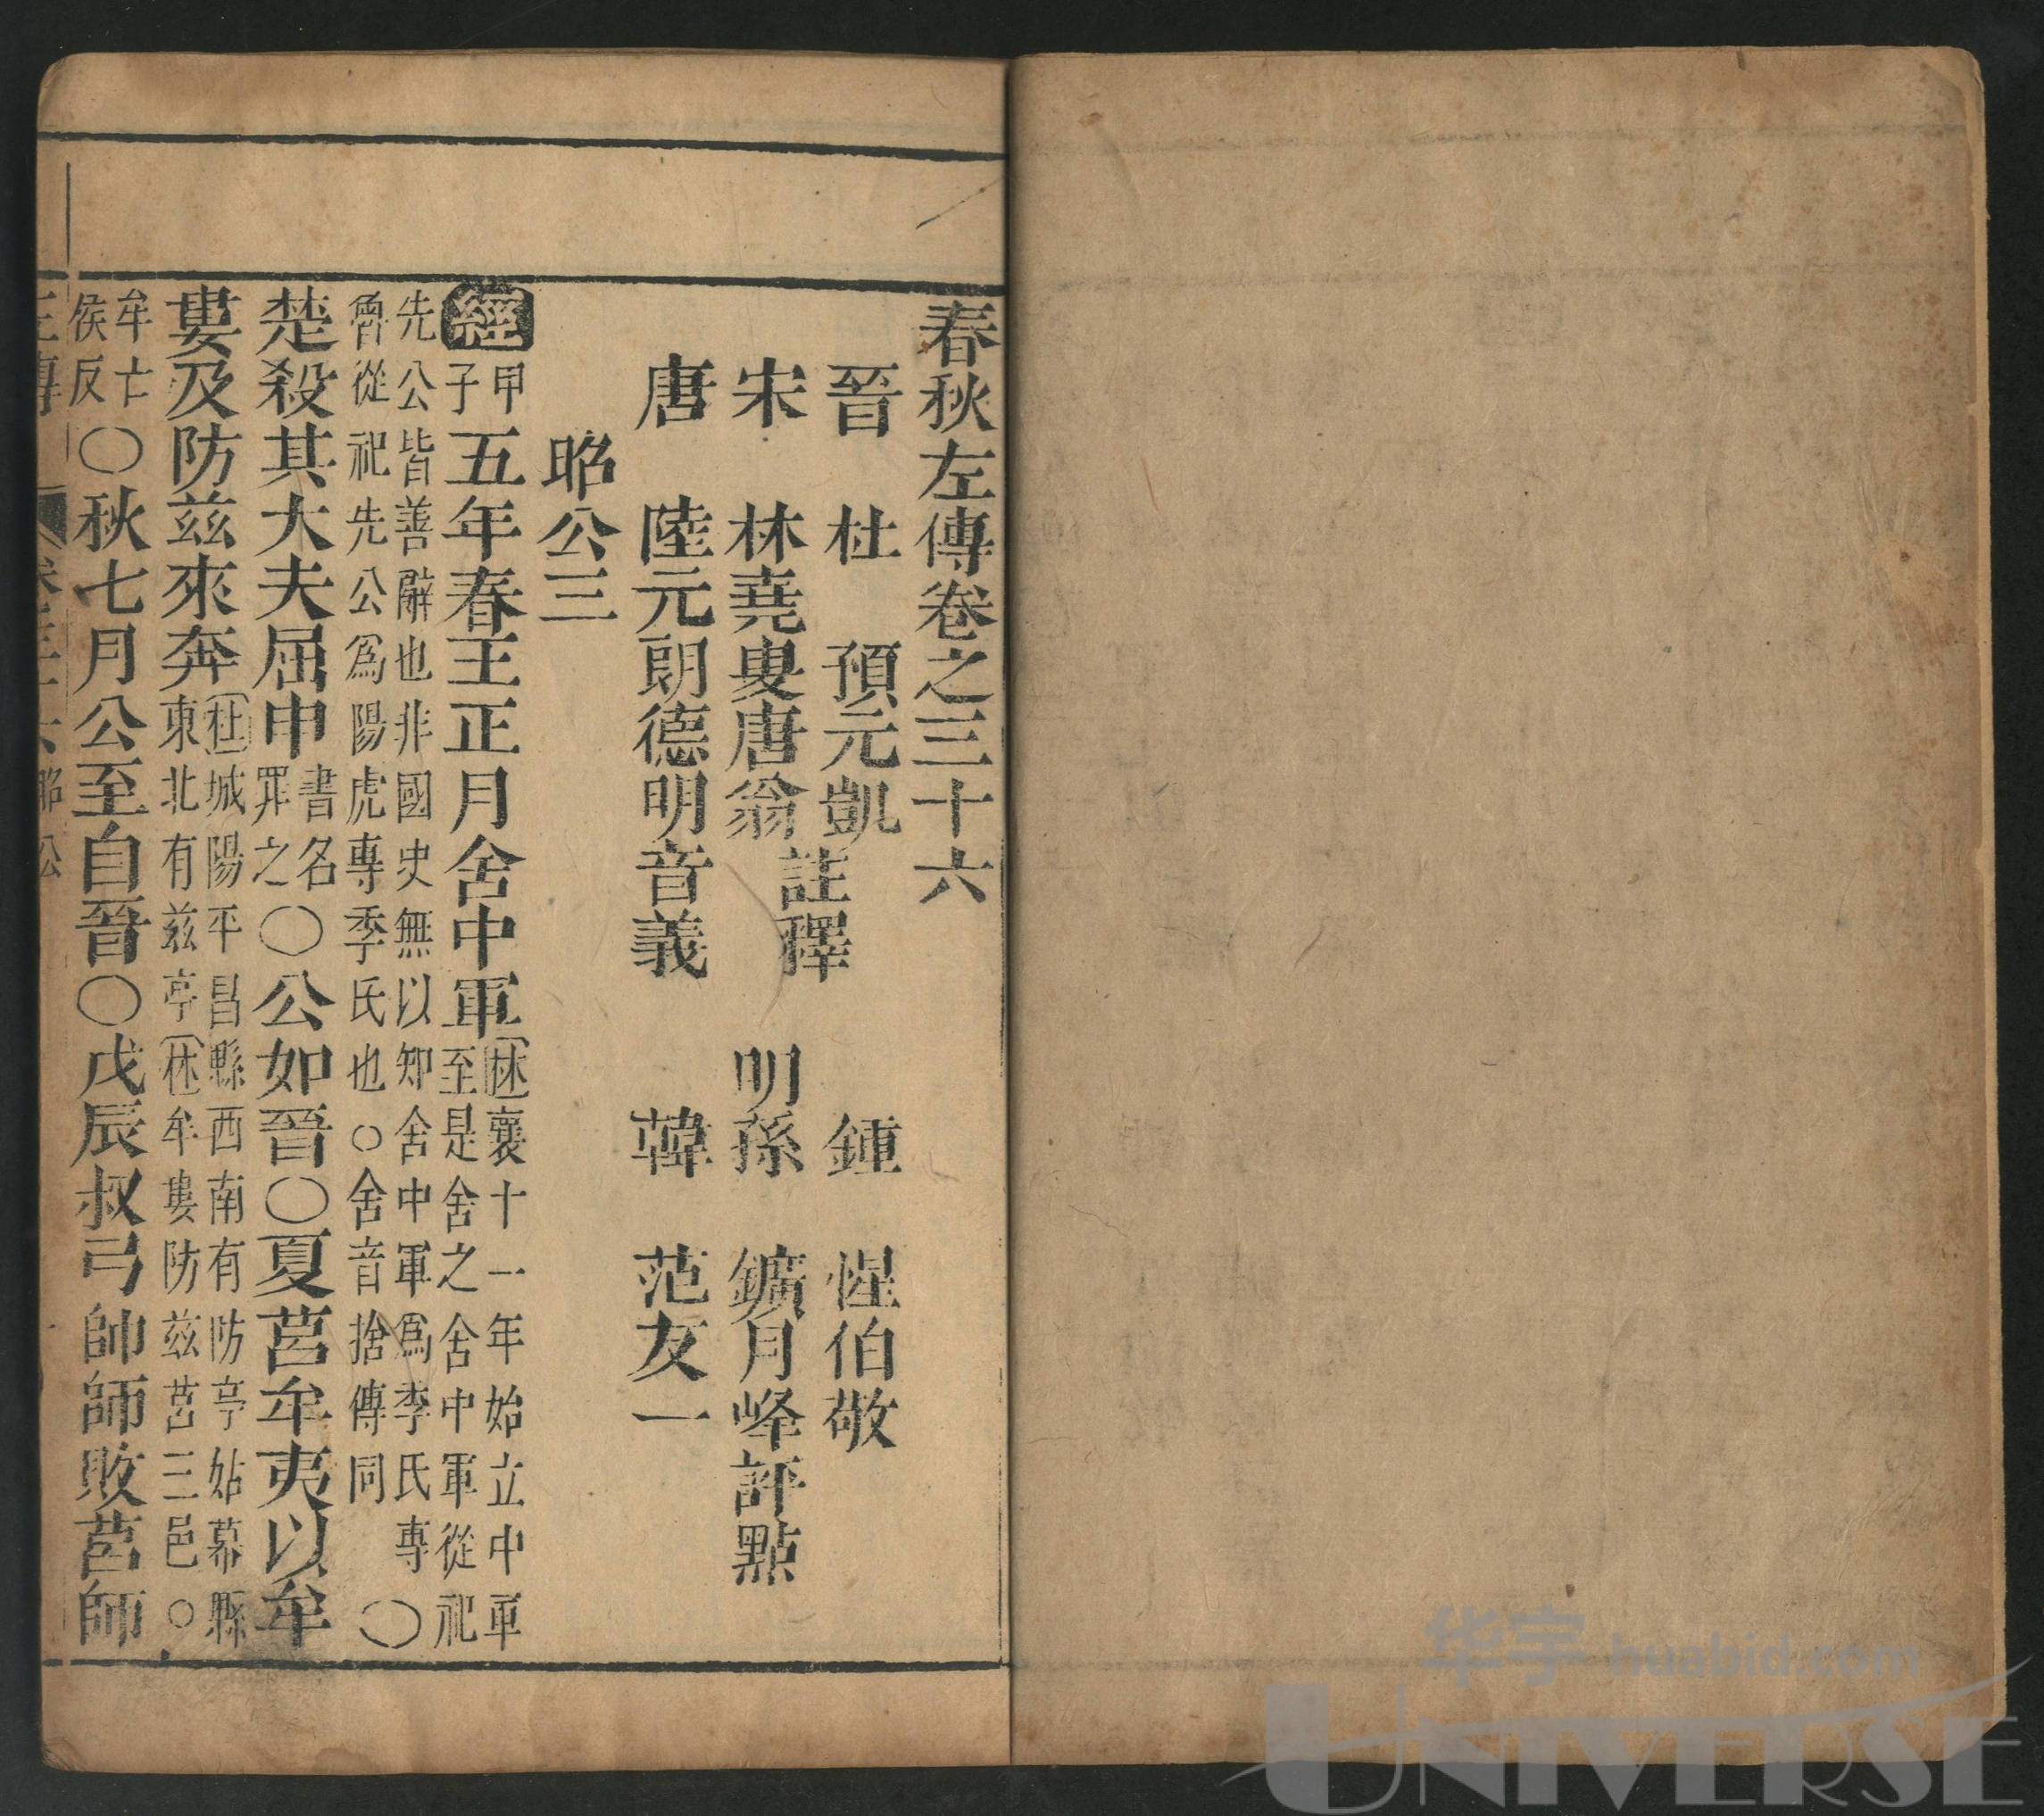 春秋左傳卷之三十六
晉 杜 預元凱 註釋 鍾 惺伯敬
宋 林堯叟唐翁 明孫 鑛月峰評點
唐 陸元朗德明音義 韓 范友一
昭公三
經甲子五年春王正月舍中軍林襄十一年始立中軍
至是舍之舍中軍從祀
先公皆善辭也非國史無以知舍中軍為季氏專
爵從祀先公為陽虎專季氏也○舍音捨傳同○
楚殺其大夫屈申書名罪之○公如晉○夏莒牟夷以牟
婁及防茲來奔杜城陽平昌縣西南有防亭姑幕縣
東北有茲亭林牟婁防茲莒三邑○
牟亡侯反○秋七月公至自晉○戊辰叔弓帥師敗莒師
昭公
华宇 huabid.com
UNIVERSE